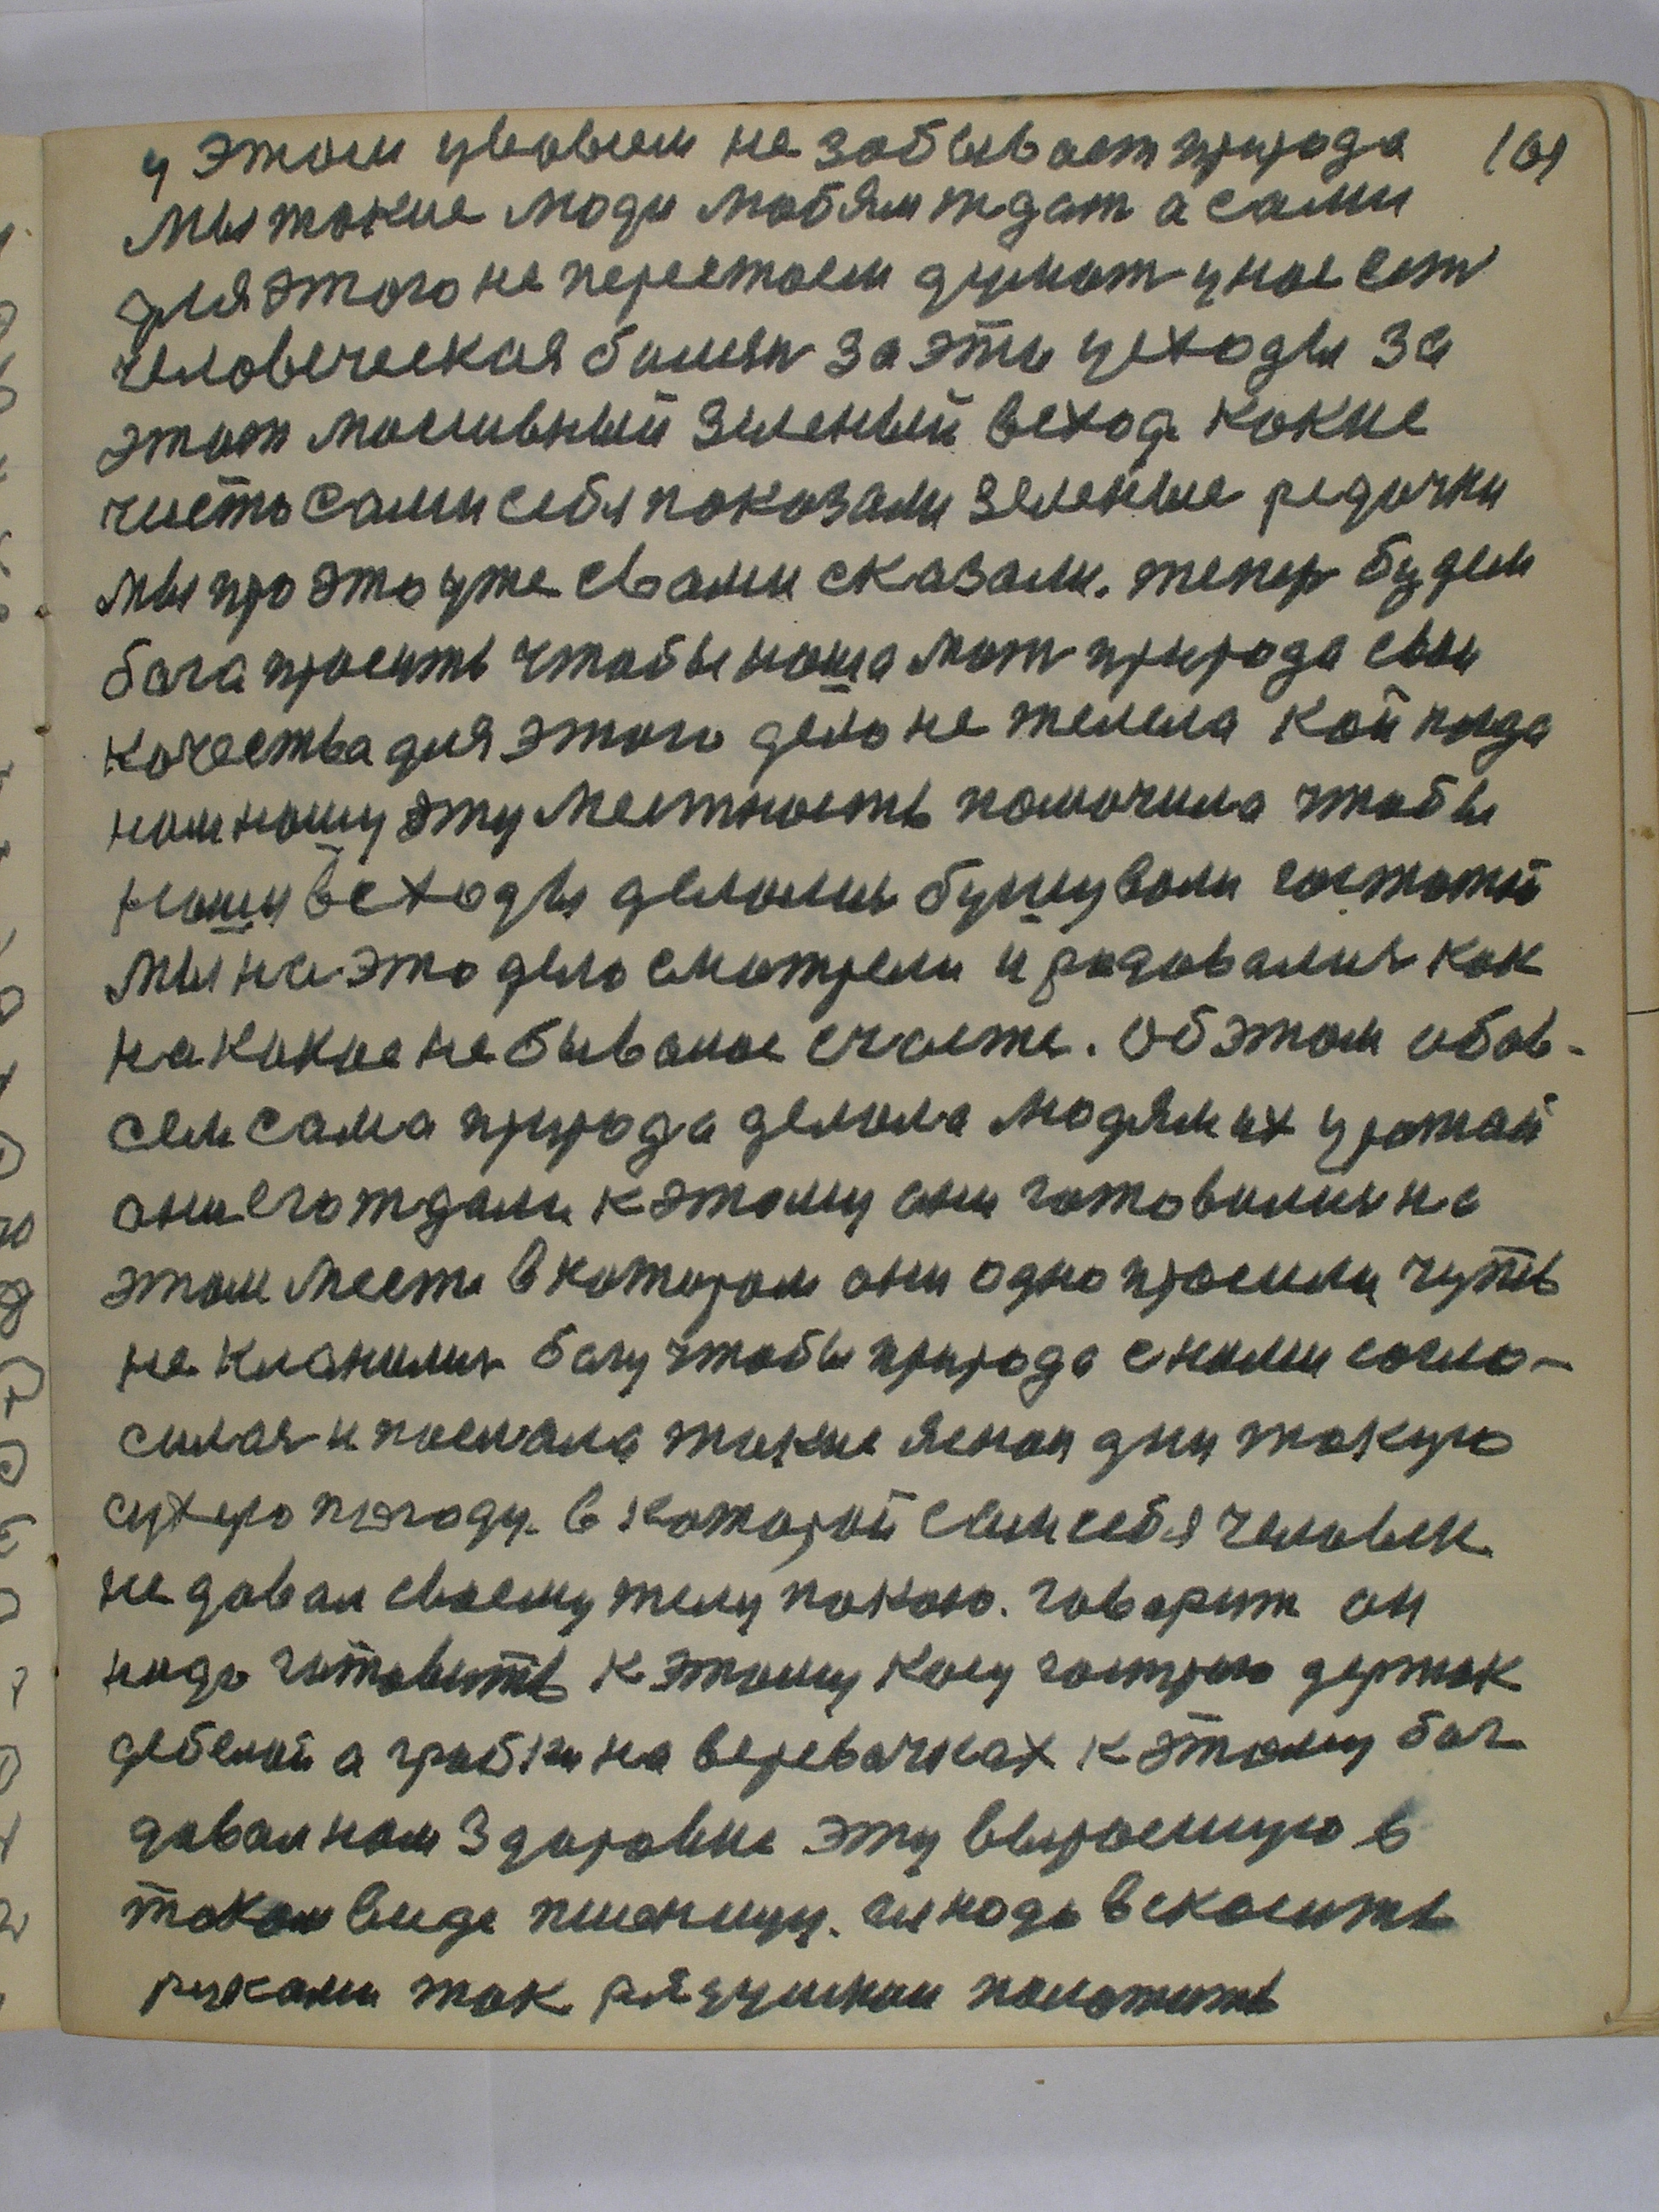 у этом цвовем не забывает природа 101
мы такие люди любям ждат а сами
для этого не перестаем думат унас ест
человеческая болезн за эти усходы за
этот массивный зеленый всход какие
чисто сами себя показали зеленые редочки
мы про это уже свами сказали. тепер будем
бога просить чтобы наша мат природа свои
качества для этого дело не желела кой когда
нам нашу эту местность помочила чтобы
наши всходы делались бушували густотой
мы на это дело смотрели и радовалися как
на какое не бывалое счасте. Об этом обов-
сем сама природа делала людям их урожай
они его ждали к этому они готовилися на
этом месте в котором они одно просили чуть
не кланялись богу чтобы природа с ними согло-
силася и послала такие ясныи дни такую
сухую погоду. в которой сам себя человек
не давал своему телу покою. говорит он
надо готовить к этому косу гострую держак
дебелой а грабки на веревочках к этому бог
давал нам здоровие эту выросшую в
таком виде пшеницу. ее надо вскосить
руками так рядушком положить